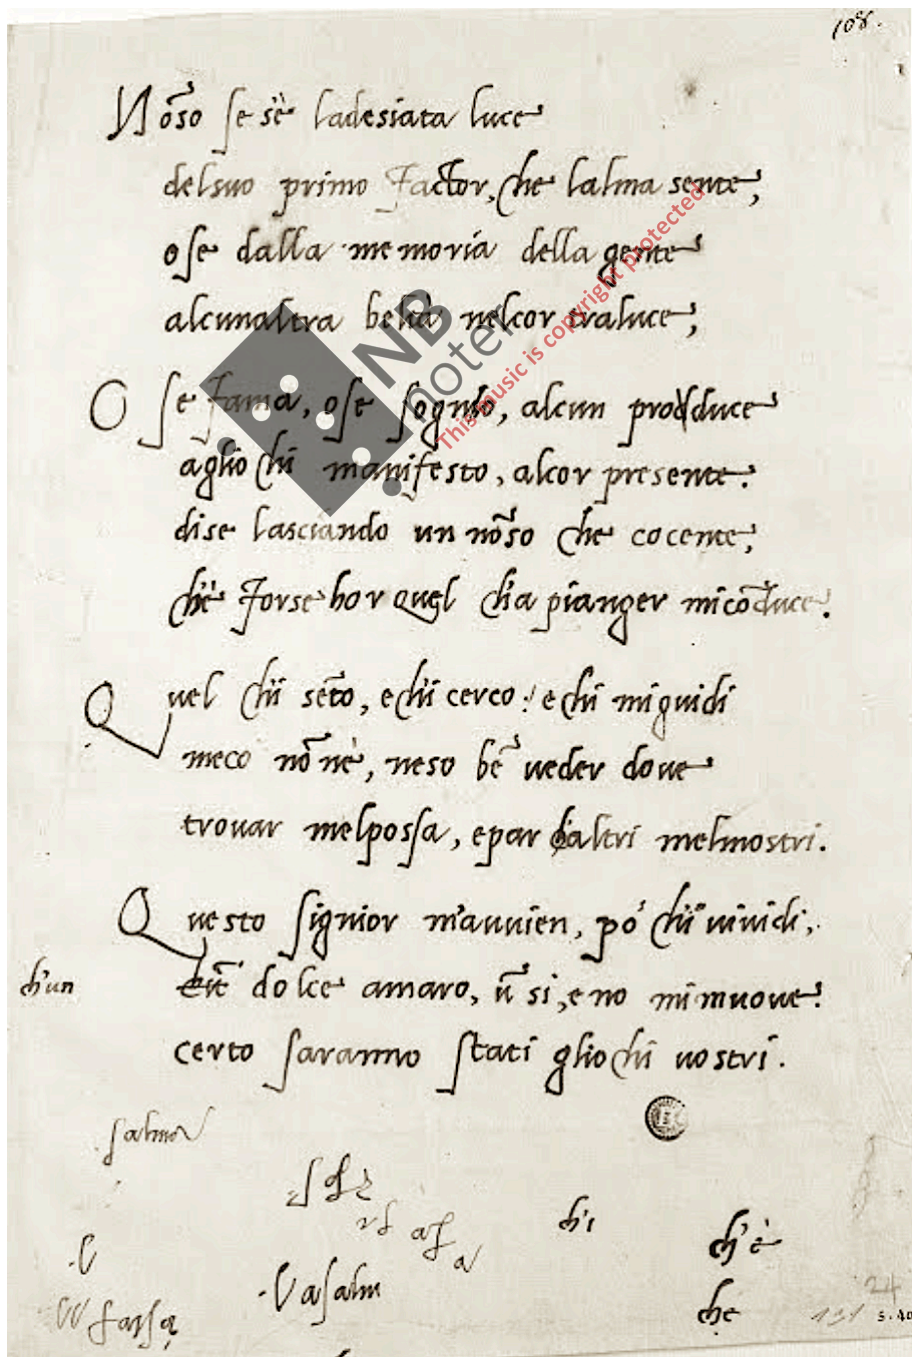 108.
Nõso se s'è ladesiata luce
delsuo primo Factor, che lalma sente,
ose dalla memoria della gente
alcunaltra beltà nelcor traluce,
O se fama, ose sognio, alcun prodduce
agliochi manifesto, alcor presente.
dise lasciando un nõso che cocente,
ch'è Forse hor quel ch'a pianger micõduce.
Quel ch'i sẽto, e ch'i cerco: e chi miguidi
meco nõ nè, neso bẽ ueder doue
trouar melpossa, epar ch'altri melmostri.
Questo signior m'auuien, po' ch'i'uiuidi,
ch'un dolce amaro, ũ si, e no mimuoue:
certo saranno stati gliochi uostri.
salmo
ch'i
ch'è
Vasalm
che
24
5.40
NB noter
This music is copyright protected